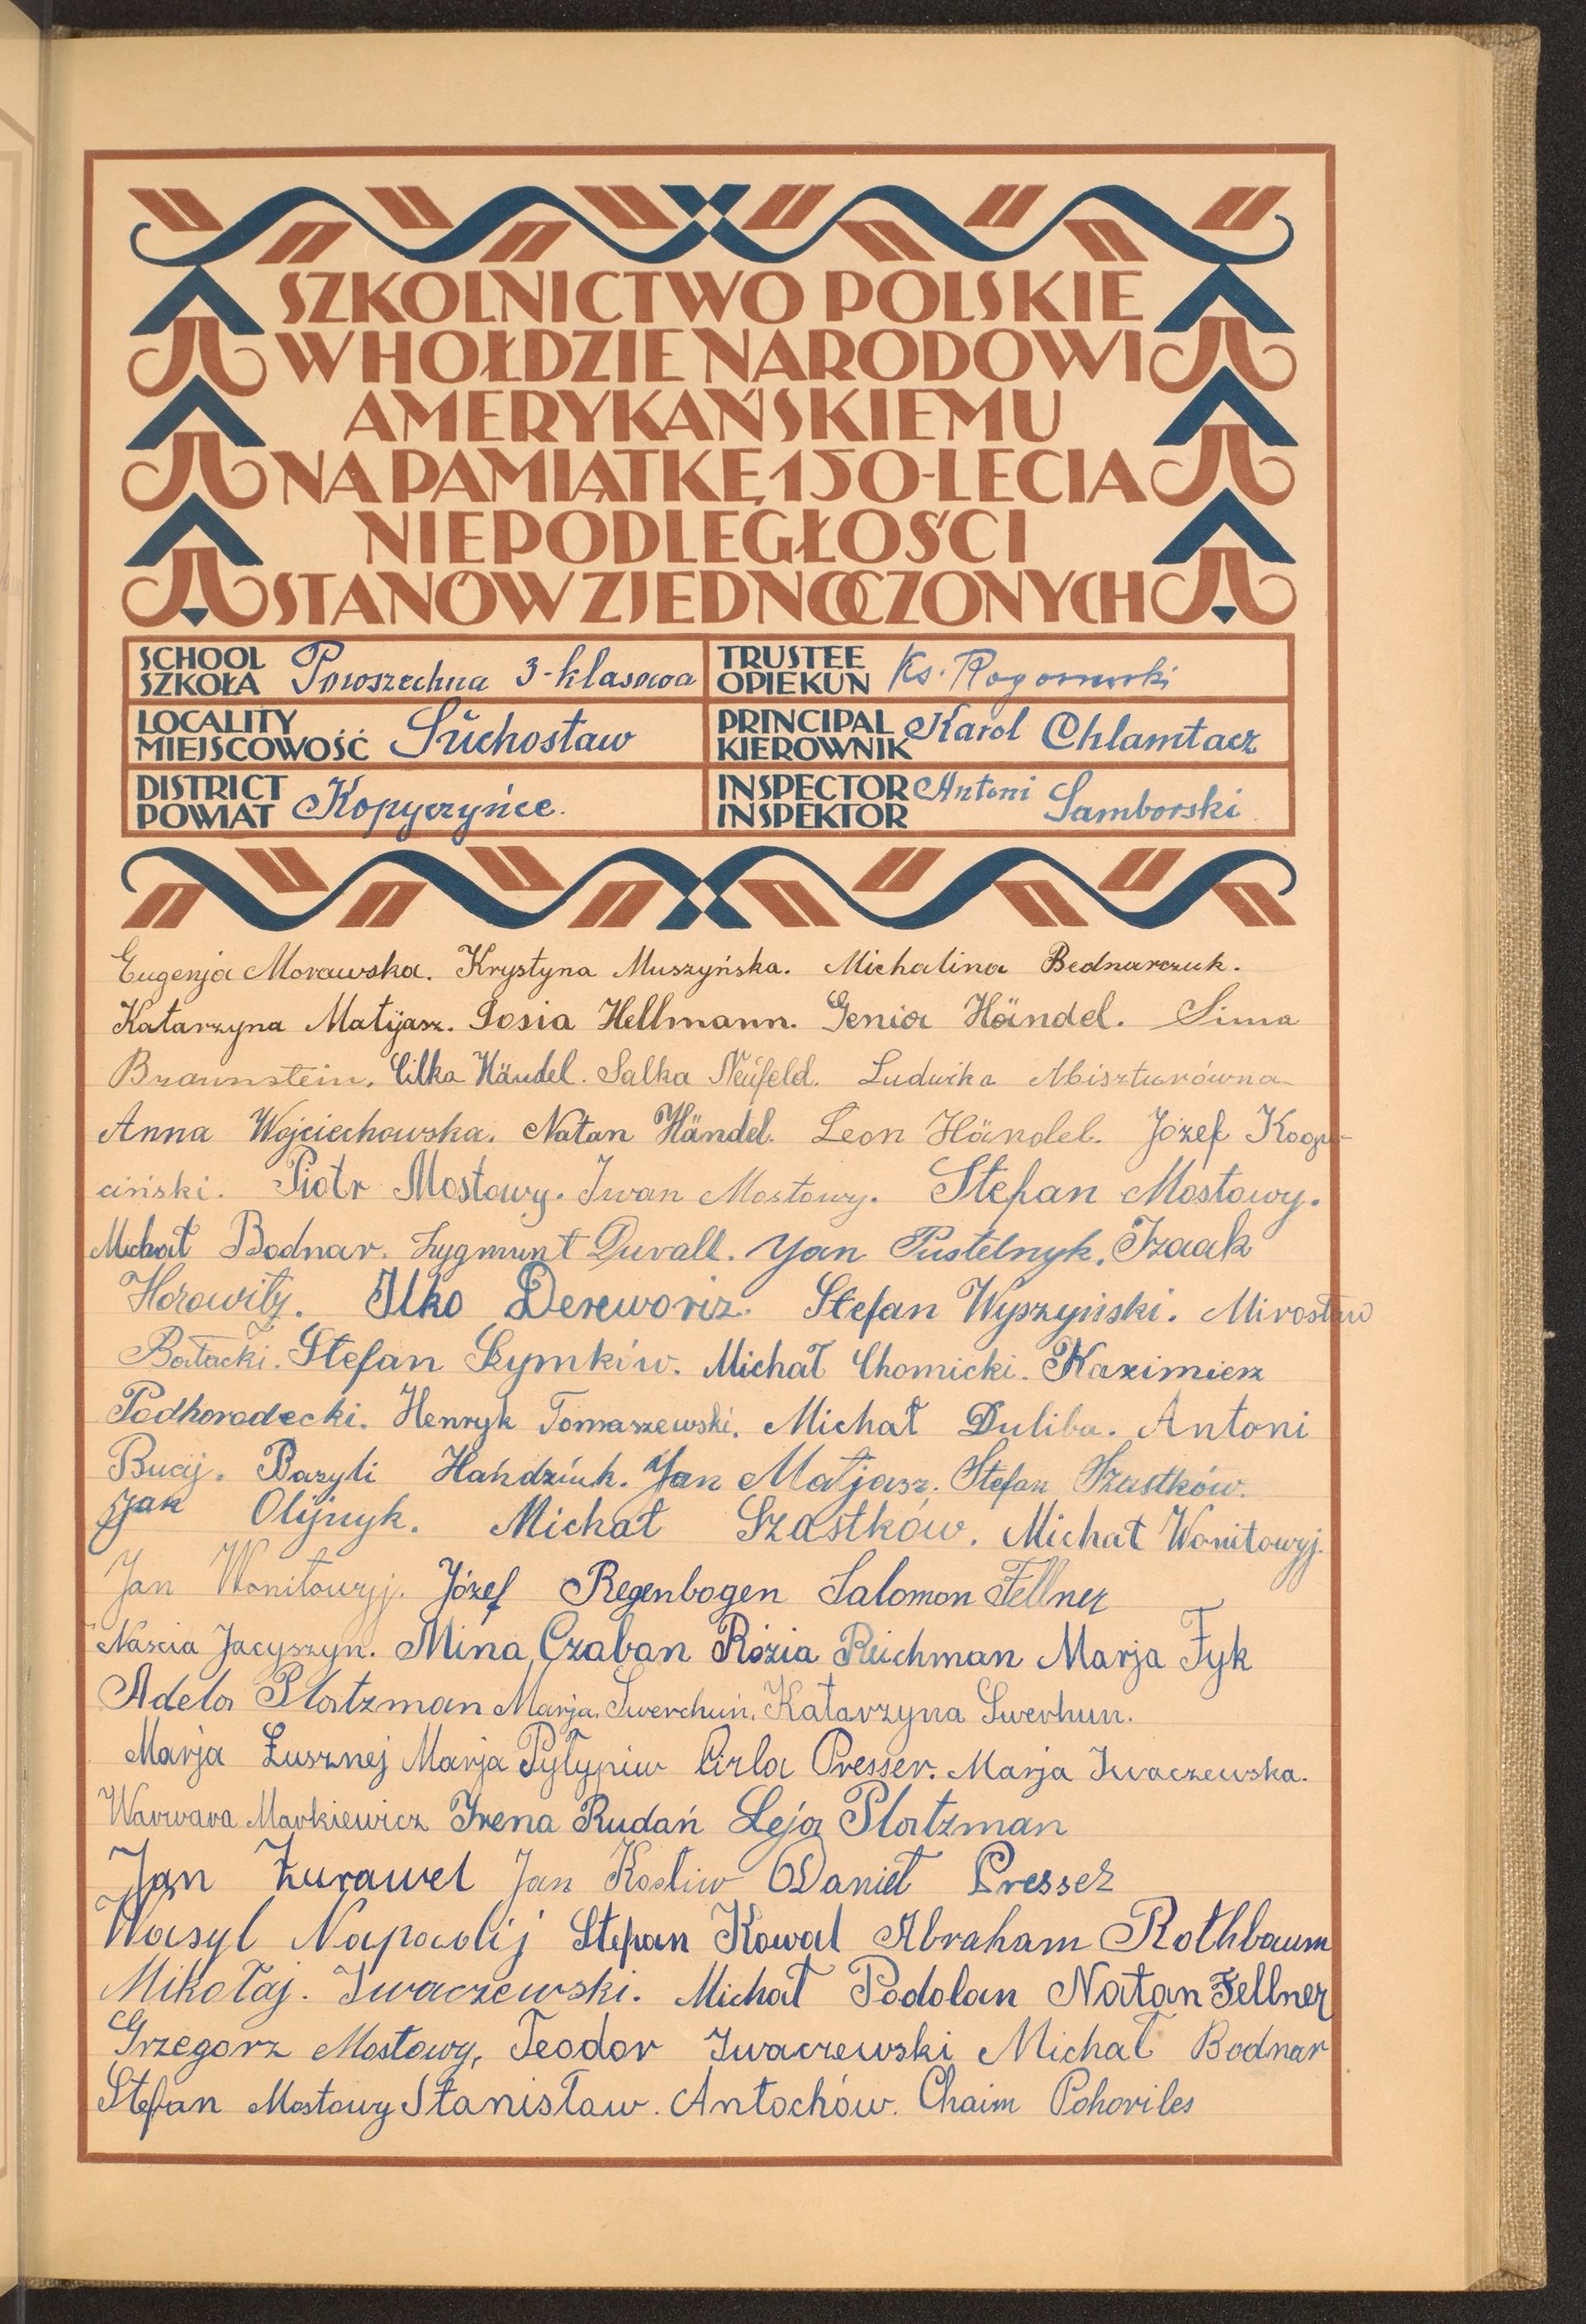 SZKOLNICTWO POLSKIE
W HOŁDZIE NARODOWI
AMERYKAŃSKIEMU
NA PAMIĄTKĘ 150-LECIA
NIEPODLEGŁOŚCI
STANÓW ZJEDNOCZONYCH
SCHOOL
SZKOŁA Powszechna 3-klasowa
TRUSTEE
OPIEKUN Ks. Rogorowski
LOCALITY
MIEJSCOWOŚĆ Suchostaw
PRINCIPAL
KIEROWNIK Karol Chlamtacz
DISTRICT
POWIAT Kopyczyńce.
INSPECTOR
INSPEKTOR Antoni Samborski
Eugenja Morawska. Krystyna Muszyńska. Michalina Bednarczuk.
Katarzyna Matijasz. Josia Hellmann. Genia Händel. Sima
Braunstein. Cilka Händel. Salka Neufeld. Ludwika Miszturówna
Anna Wojciechowska. Natan Händel. Leon Händel. Józef Kogu-
ciński. Piotr Mostowy. Iwan Mostowy. Stefan Mostowy.
Michał Bodnar. Zygmunt Duvall. Jan Pustelnyk. Izaak
Horowitz. Ilko Dereworiz. Stefan Wyszyński. Mirosław
Bałacki. Stefan Szymków. Michał Chomicki. Kazimierz
Podhorodecki. Henryk Tomaszewski. Michał Duliba. Antoni
Bucij. Bazyli Hańdziuk. Jan Matjasz. Stefan Szastków.
Jan Olijnyk. Michał Szastków. Michał Wonitowyj.
Jan Wonitowyj. Józef Regenbogen Salomon Fellner
Nascia Jacyszyn. Mina Czaban Rózia Reichman Marja Fyk
Adela Platzman Marja Swerchun. Katarzyna Swerhun.
Marja Łusznej Marja Pyłypiw Cirla Presser. Marja Iwaczewska.
Warwara Markiewicz Irena Rudań Leja Platzman
Jan Żurawel Jan Kostiw Daniel Presser
Wasyl Napadij Stefan Kowal Abraham Rothbaum
Mikołaj. Iwaczewski. Michał Podolan Natan Fellner
Grzegorz Mostowy, Teodor Iwaczewski Michał Bodnar
Stefan Mostowy Stanisław. Antochów. Chaim Pohoriles